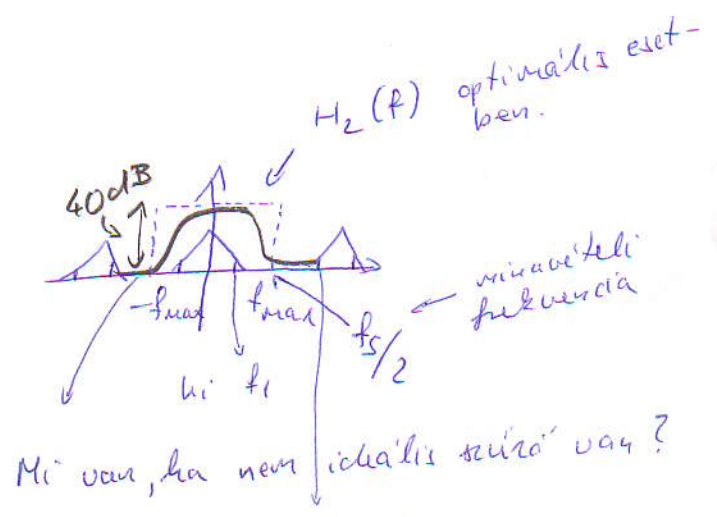 H₂(f) optimális eset-
ben.
40dB
-fmax
fmax
fs/2
mintavételi
frekvencia
ki f₁
Mi van, ha nem ideális szűrő van?